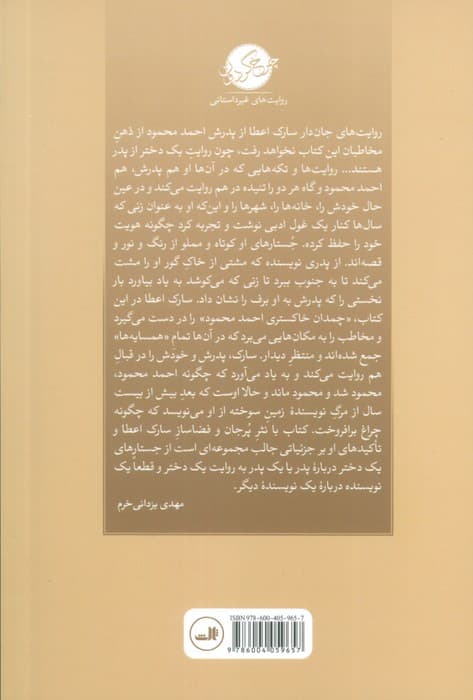 روایت‌های غیرداستانی
روایت‌های جان‌دار سارک اعطا از پدرش احمد محمود از ذهنِ
مخاطبان این کتاب نخواهد رفت، چون روایتِ یک دختر از پدر
هستند... روایت‌ها و تکه‌هایی که در آن‌ها او هم پدرش، هم
احمد محمود و گاه هر دو را تنیده در هم روایت می‌کند و در عین
حال خودش را، خانه‌ها را، شهرها را و این‌که او به عنوان زنی که
سال‌ها کنار یک غول ادبی نوشت و تجربه کرد چگونه هویت
خود را حفظ کرده. جُستارهای او کوتاه و مملو از رنگ و نور و
قصه‌اند. از پدری نویسنده که مشتی از خاکِ گور او را مشت
می‌کند تا به جنوب ببرد تا زنی که می‌کوشد به یاد بیاورد بار
نخستی را که پدرش به او برف را نشان داد. سارک اعطا در این
کتاب، «چمدان خاکستری احمد محمود» را در دست می‌گیرد
و مخاطب را به مکان‌هایی می‌برد که در آن‌ها تمامِ «همسایه‌ها»
جمع شده‌اند و منتظرِ دیدار. سارک، پدرش و خودش را در قبالِ
هم روایت می‌کند و به یاد می‌آورد که چگونه احمد محمود،
محمود شد و محمود ماند و حالا اوست که بعدِ بیش از بیست
سال از مرگِ نویسندهٔ زمینِ سوخته از او می‌نویسد که چگونه
چراغ برافروخت. کتاب با نثرِ پُرجان و فضاسازِ سارک اعطا و
تأکیدهای او بر جزئیاتی جالب مجموعه‌ای است از جستارهای
یک دختر دربارهٔ پدر یا یک پدر به روایت یک دختر و قطعاً یک
نویسنده دربارهٔ یک نویسندهٔ دیگر.
مهدی یزدانی‌خرم
ISBN 978-600-405-965-7
ثالث
9 786004 059657